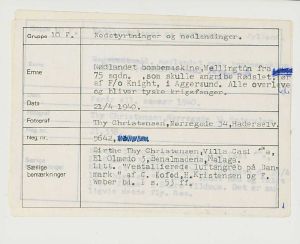 Gruppe 10 F. Nødstyrtninger og nødlandinger.
Emne Nødlandet bombemaskine, Wellington fra
75 sqdn. , som skulle angribe Rødslet, ført
af F/o Knight, i Aggersund. Alle overlever
og bliver tyske krigsfanger.
Dato 21/4 1940.
Fotograf Thy Christensen, Nørregade 34, Haderslev.
Neg. nr. 5642,
Særlige bemærkninger Birthe Thy Christensen, Villa
El Olmedo 5, Benalmadena, Malaga.
Litt. "Vestallierede luftangreb på Dan-
mark" af C. Kofod, H. Kristensen og F.
Weber bd. 1 s. 53 ff.